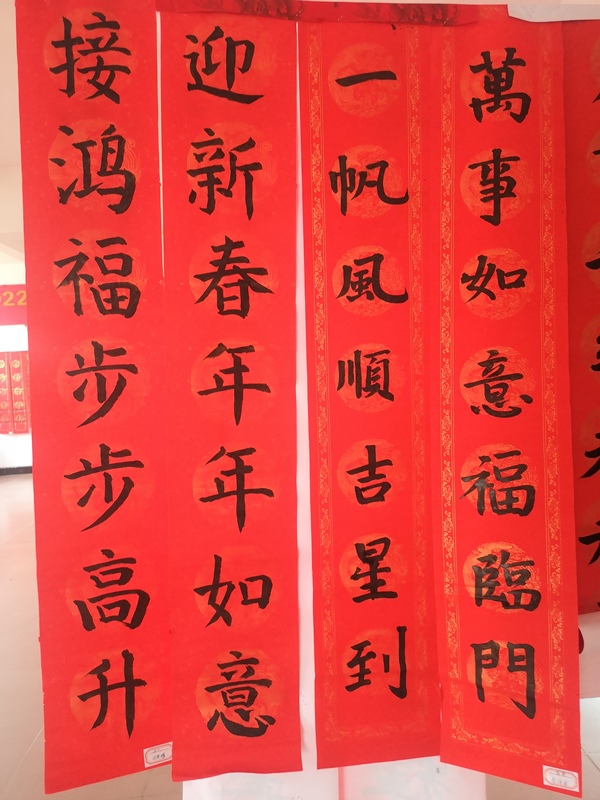 萬事如意福臨門
一帆風順吉星到
迎新春年年如意
接鸿福步步高升
22